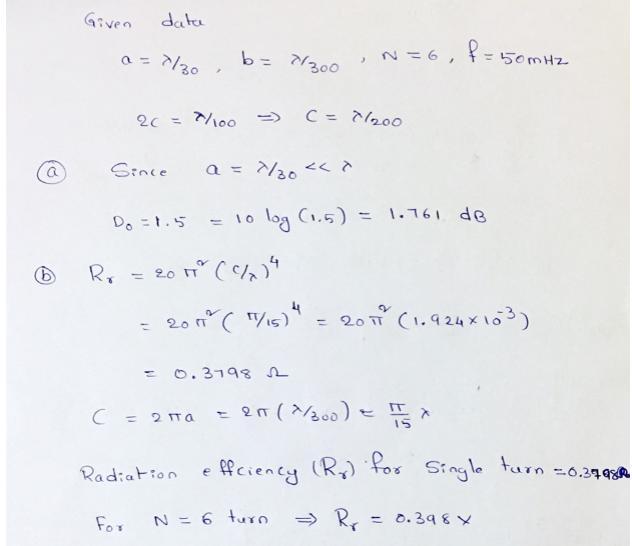 Given data
a = λ/30 , b = λ/300 , N = 6 , f = 50mHz
2C = λ/100 ⇒ C = λ/200
(a) Since a = λ/30 << λ
D₀ = 1.5 = 10 log (1.5) = 1.761 dB
(b) Rr = 20 π² (C/λ)⁴
= 20 π² (π/15)⁴ = 20 π² (1.924 × 10⁻³)
= 0.3798 Ω
C = 2πa = 2π (λ/300) = π/15 λ
Radiation effciency (Rr) for Single turn = 0.3798Ω
For N = 6 turn ⇒ Rr = 0.398 ×